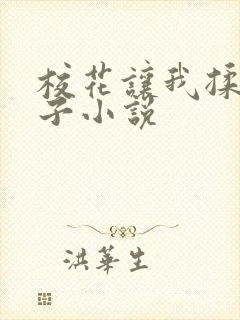 校花讓我揉
子小說
洪華生